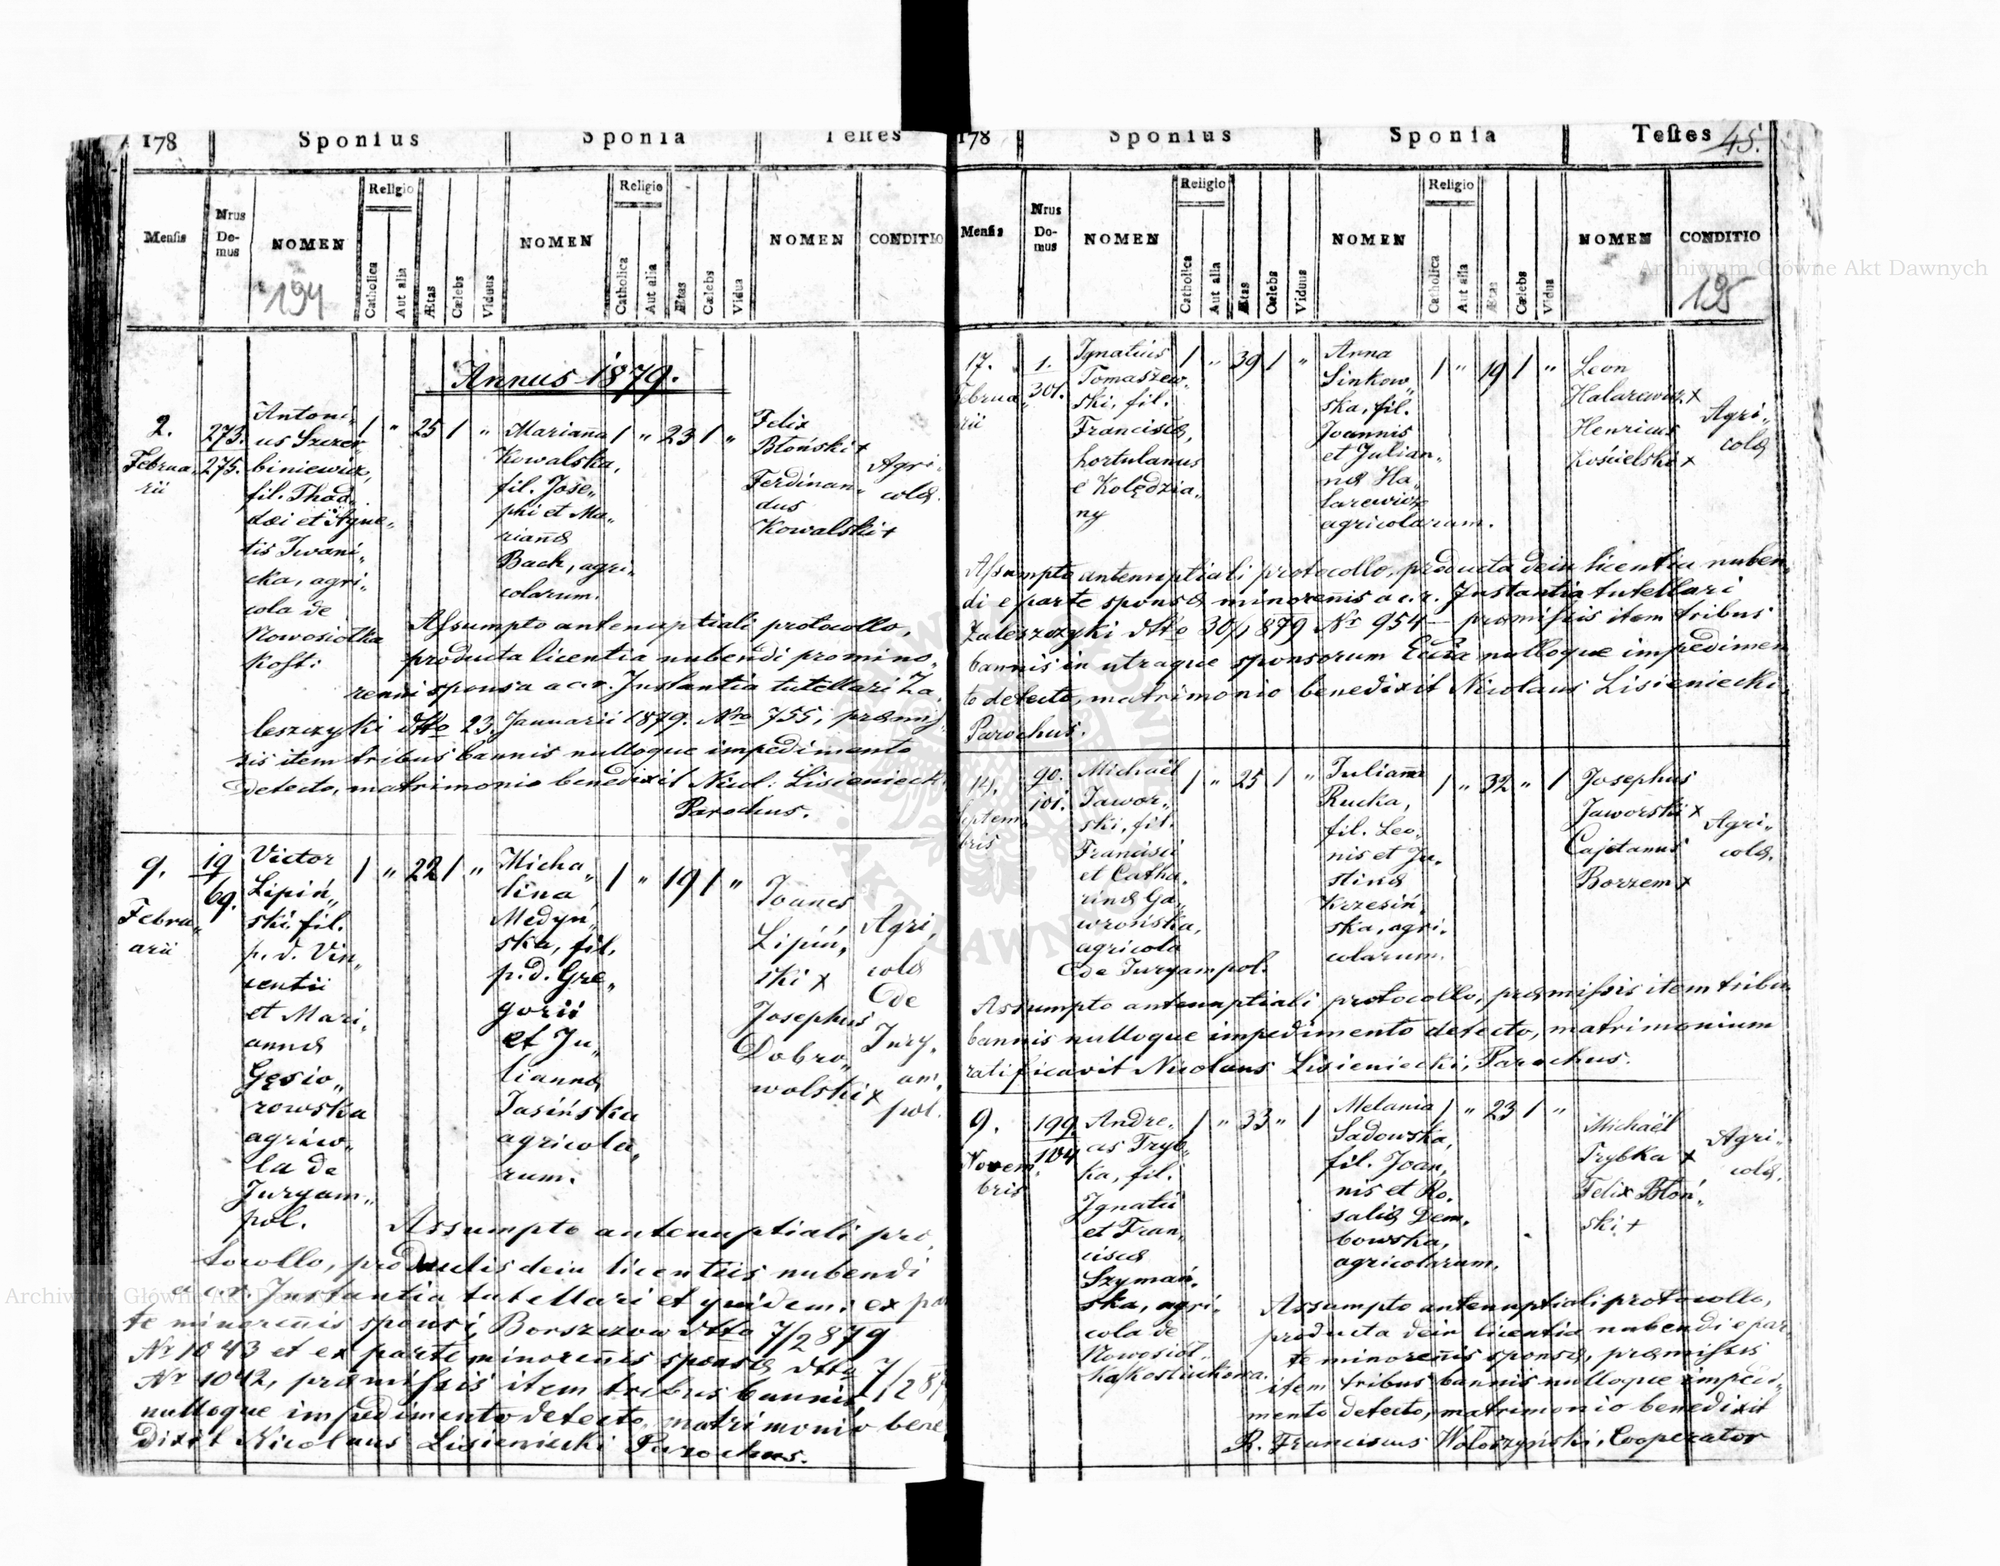 178 Sponsus Sponsa Testes
Religio Religio
Mensis Nrus Domus NOMEN Catholica Aut alia Ætas Cælebs Viduus NOMEN Catholica Aut alia Ætas Cælebs Vidua NOMEN CONDITIO
194
Annus 1879.
2.
Februa„
rii
273.
275.
Antoni„
us Szczer„
biniewicz,
fil. Thad„
dæi et Agne„
tis Iwani„
cka, agri„
cola de
Nowosiołka
Kost:
1 „ 25 1 „
Marianna
Kowalska,
fil. Jose„
phi et Ma„
riannæ
Bach, agri„
colarum.
1 „ 23 1 „
Felix
Błoński +
Ferdinan„
dus
Kowalski +
Agri„
colæ.
Assumpto antenuptiali protocollo,
producta licentia nubendi pro mino„
renni sponsa a c.r. Instantia tutellari Za„
leszczyki dtto 23. Januarii 1879. Nro 755, præmis„
sis item tribus bannis nulloque impedimento
detecto, matrimonio benedixit Nicol: Lisieniecki
Parochus.
9.
Febru„
arii
19
69.
Victor
Lipiń„
ski, fil.
p. d. Vin„
centii
et Mari„
annæ
Gęsio„
rowska
agrico„
la de
Juryam„
pol.
1 „ 22 1 „
Micha„
lina
Medyń„
ska, fil.
p. d. Gre„
gorii
et Ju„
liannæ
Jasińska
agricola„
rum.
1 „ 19 1 „
Joanes
Lipiń„
ski x
Josephus
Dobro„
wolski x
Agri„
colæ
de
Jury„
am„
pol.
Assumpto antenuptiali pro„
tocollo, productis dein licentiis nubendi
a c.r. Instantia tutellari et quidem: ex par
te minorennis sponsi, Borszczow dtto 7/2 879
Nr 1043 et ex parte minorennis sponsæ dtto 7/2 87
Nr 1042, præmissis item tribus bannis
nulloque impedimento detecto, matrimonio bene
dixit Nicolaus Lisieniecki Parochus.
178 Sponsus Sponsa Testes 45.
Religio Religio
Mensis Nrus Domus NOMEN Catholica Aut alia Ætas Cælebs Viduus NOMEN Catholica Aut alia Ætas Cælebs Vidua NOMEN CONDITIO
195
17.
Februa„
rii
1.
301.
Ignatius
Tomaszew„
ski, fil.
Franciscæ,
hortulanus
e Kolędzia„
ny
1 „ 39 1 „
Anna
Sinkow„
ska, fil.
Joannis
et Julian„
næ Ha„
larewicz
agricolarum.
1 „ 19 1 „
Leon
Halarewicz x
Henricus
Kościelski x
Agri„
colæ
Assumpto antenuptiali protocollo, producta dein licentia nuben„
di e parte sponsæ minorennis a c.r. Instantia tutellari
Zaleszczyki dtto 30/1 879 Nr 954 – præmissis item tribus
bannis in utraque sponsorum Eccia nulloque impedimen
to detecto, matrimonio benedixit Nicolaus Lisieniecki,
Parochus.
14.
Septem„
bris
90.
101.
Michaël
Jawor„
ski, fil.
Francisci
et Catha„
rinæ Ga„
wrońska,
agricola
de Juryampol.
1 „ 25 1 „
Julianna
Rucka,
fil. Leo„
nis et Ju„
stinæ
Krzesiń„
ska, agri„
colarum.
1 „ 32 „ 1
Josephus
Jaworski x
Cajetanus
Borzem x
Agri„
colæ.
Assumpto antenuptiali protocollo, præmissis item tribu
bannis nulloque impedimento detecto, matrimonium
ratificavit Nicolaus Lisieniecki, Parochus.
9.
Novem„
bris
199
104
Andre„
as Tryb„
ka, fil.
Ignatii
et Fran„
ciscæ
Szymań„
ska, agri„
cola de
Nowosioł„
ka Kostiukowa.
1 „ 33 „ 1
Melania
Sadowska,
fil. Joan„
nis et Ro„
saliæ Dem„
bowska,
agricolarum.
1 „ 23 1 „
Michaël
Trybka x
Felix Błoń„
ski +
Agri„
colæ.
Assumpto antenuptiali protocollo,
producta dein licentia nubendi e par„
te minorennis sponsæ, præmissis
item tribus bannis nulloque impedi„
mento detecto, matrimonio benedixit
R. Franciscus Wołoszyński, Cooperator
Archiwum Główne Akt Dawnych
Archiwum Główne Akt Dawnych